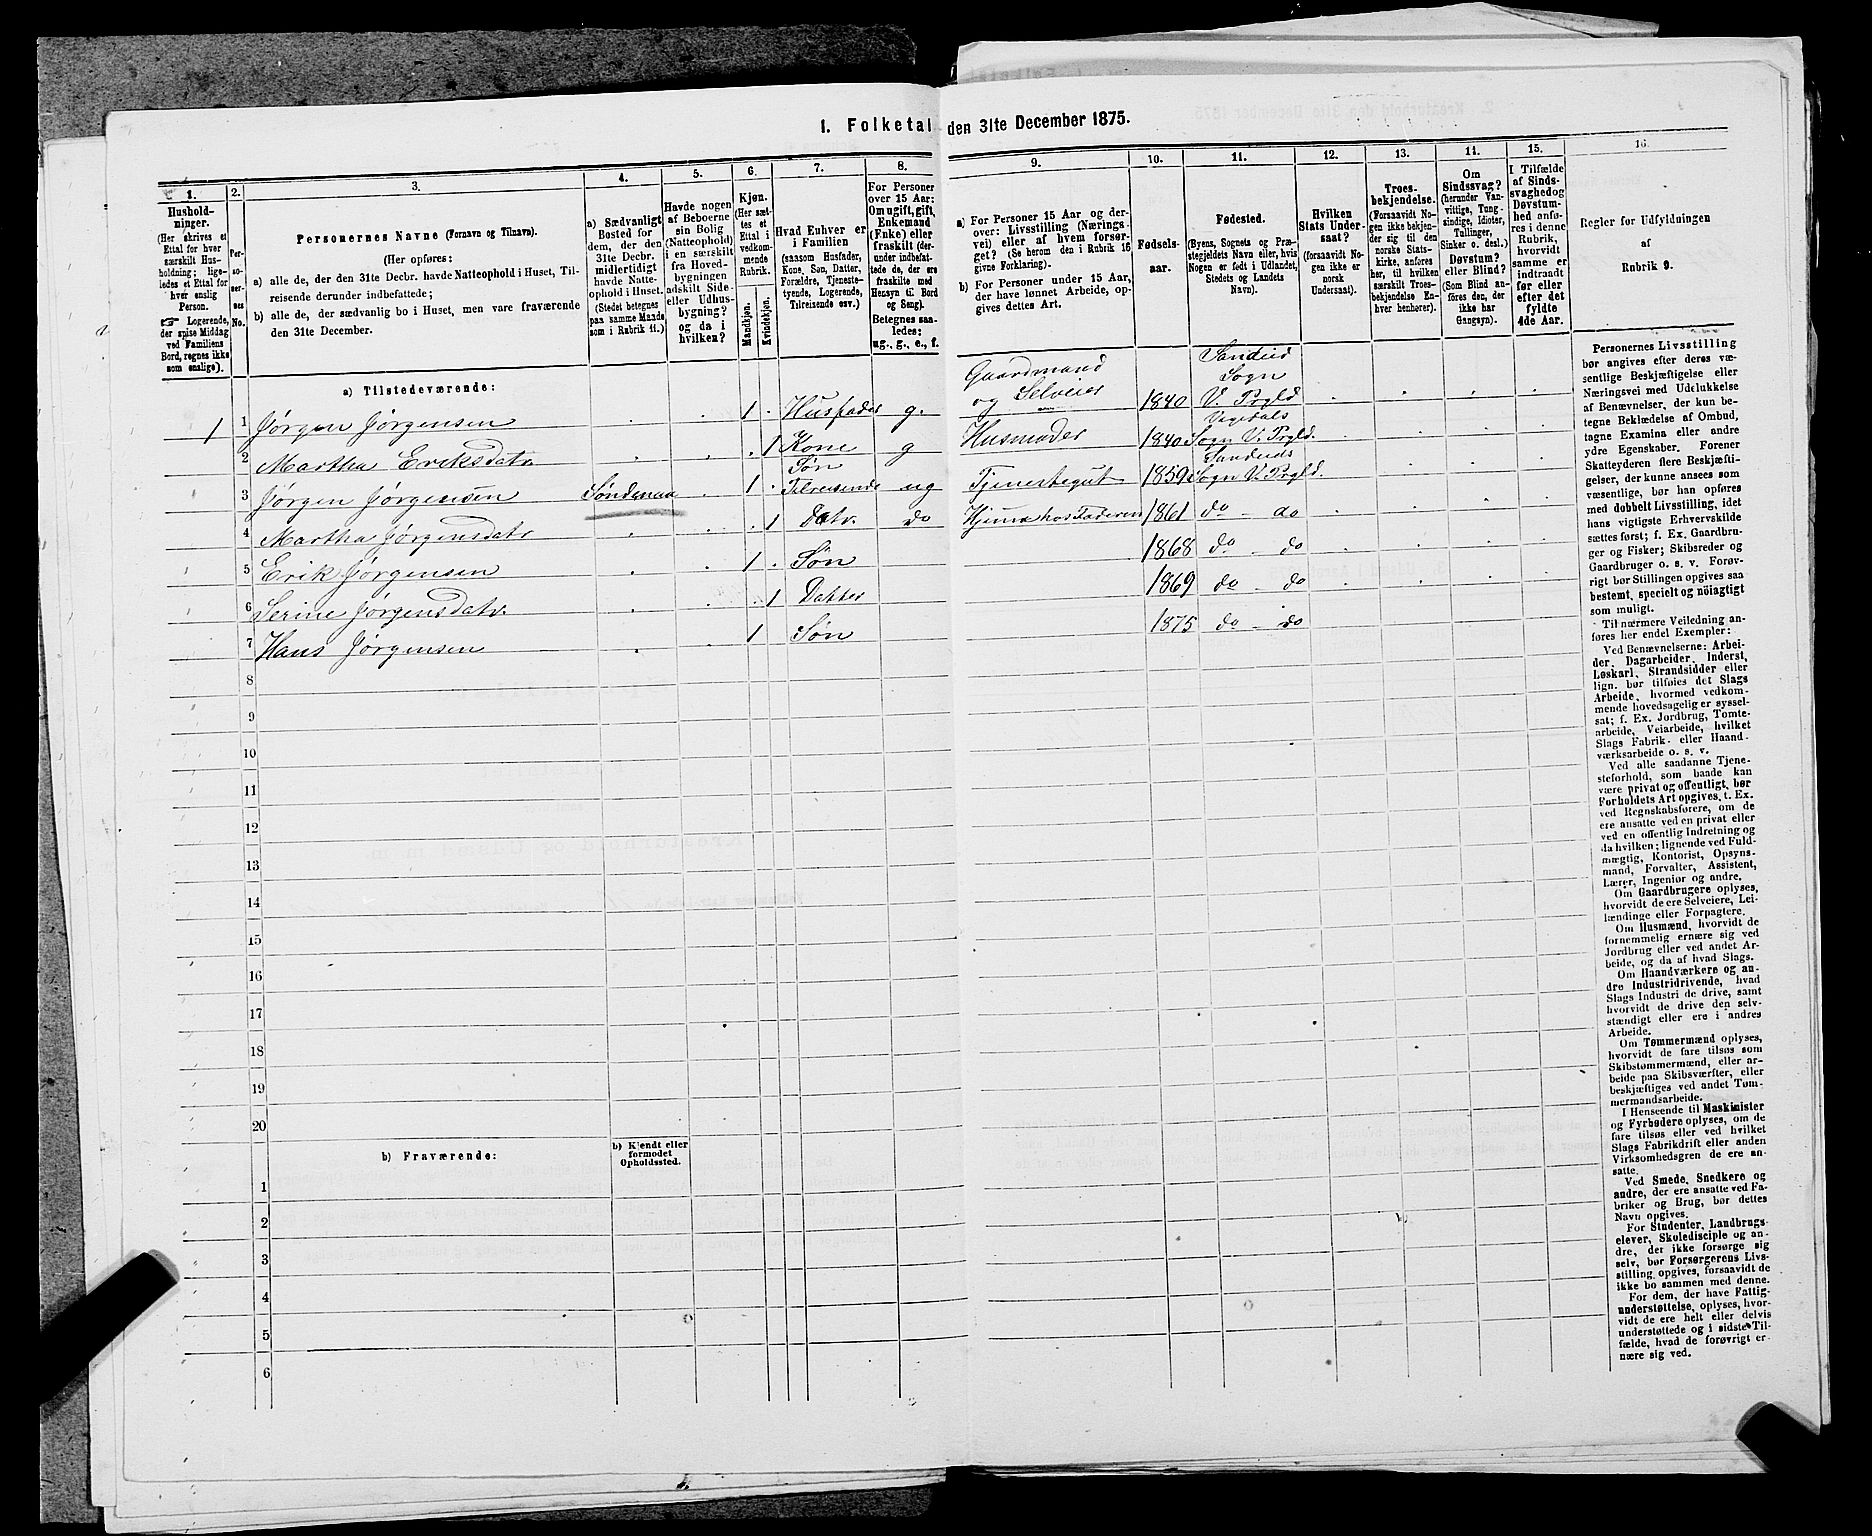 1. Folketal den 31te December 1875.
1. 2. 3. 4. 5. 6. 7. 8. 9. 10. 11. 12. 13. 14. 15. 16.
Hushold-
ninger.
(Her skrives et
Ettal for hver
særskilt Hus-
holdning; lige-
ledes et Ettal for
hver enslig
Person.
☞ Logerende,
der spise Middag
ved Familiens
Bord, regnes ikke
som enslige).
Per-
so-
ner-
nes
No.
Personernes Navne (Fornavn og Tilnavn).
(Her opføres:
a) alle de, der den 31te Decbr. havde Natteophold i Huset, Til-
reisende derunder indbefattede;
b) alle de, der sædvanlig bo i Huset, men vare fraværende
den 31te December.
a) Sædvanligt
Bosted for
dem, der den
31te Decbr.
midlertidigt
havde Natte-
ophold i Huset.
(Stedet betegnes
paa samme Maade
som i Rubrik 11.)
Havde nogen
af Beboerne
sin Bolig
(Natteophold)
i en særskilt
fra Hoved-
bygningen
adskilt Side-
eller Udhus-
bygning?
og da i
hvilken?
Kjøn.
(Her sæt-
tes et
Ettal i
vedkom-
mende
Rubrik.
Mandkjøn.
Kvindekjøn.
Hvad Enhver er
i Familien
(saasom Husfader,
Kone, Søn, Datter,
Forældre, Tjeneste-
tyende, Logerende,
Tilreisende osv.)
For Personer
over 15 Aar:
Om ugift, gift,
Enkemand
(Enke) eller
fraskilt (der-
under indbefat-
tede de, der ere
fraskilte med
Hensyn til Bord
og Seng).
Betegnes saa-
ledes:
ug., g., e., f.
a) For Personer 15 Aar og der-
over: Livsstilling (Nærings-
vei) eller af hvem forsør-
get? (Se herom den i Rubrik 16
givne Forklaring).
b) For Personer under 15 Aar,
der have lønnet Arbeide, op-
gives dettes Art.
Fødsels-
aar.
Fødested.
(Byens, Sognets og Præ-
stegjeldets Navn eller, hvis
Nogen er født i Udlandet,
Stedets og Landets
Navn).
Hvilken
Stats Under-
saat?
(forsaavidt No-
gen ikke er
norsk
Undersaat).
Troes-
bekjendelse.
(Forsaavidt No-
gen ikke bekjen-
der sig til den
norske Stats-
kirke, anføres
her, til hvilken
særskilt Troes-
bekjendelse En-
hver henhører).
Om
Sindssvag?
(herunder Van-
vittige, Tung-
sindige, Idioter,
Tullinger,
Sinker o. desl.)
Døvstum?
eller Blind?
(Som Blind an-
føres den, der
ikke har
Gangsyn).
I Tilfælde
af Sinds-
svaghed og
Døvstum-
hed anfø-
res i denne
Rubrik,
hvorvidt
samme er
indtraadt
før eller
efter det
fyldte
4de Aar.
Regler før Udfyldningen
af
Rubrik 9.
a) Tilstedeværende:
1 1 Jørgen Jørgensen 1 Husfader g. Gaardmand og Selveier 1840 Sandeid Sogn V. Prgld
2 Martha Eriksdatr 1 Kone g Husmoder 1840 Vigedals Sogn V. Prgld.
3 Jørgen Jørgensen 1 Søn Tilreisende ug Tjenestegut 1859 Sandeids Sogn V. Prgld.
4 Martha Jørgensdatr 1 Datr. do Hjemme hos Faderen 1861 do - do
5 Erik Jørgensen 1 Søn 1868 do - do
6 Serine Jørgensdatr. 1 Datter 1869 do - do
7 Hans Jørgensen 1 Søn 1875 do - do
8
9
10
11
12
13
14
15
16
17
18
19
20
b) Fraværende:
b) Kjendt eller
formodet
Opholdssted.
1
2
3
4
5
6
Personernes Livsstilling
bør angives efter deres væ-
sentlige Beskjæftigelse eller
Næringsvei med Udelukkelse
af Benævnelser, der kun be-
tegne Beklædelse af Ombud,
tagne Examina eller andre
ydre Egenskaber. Forener
Skatteyderen flere Beskjæfti-
gelser, der kunne ansees som
væsentlige, bør han opføres
med dobbelt Livsstilling, idet
hans vigtigste Erhvervskilde
sættes først; f. Ex. Gaardbru-
ger og Fisker; Skibsreder og
Gaardbruger o. s. v. Forøv-
rigt bør Stillingen opgives saa
bestemt, specielt og nöiagtigt
som muligt.
Til nærmere Veiledning an-
føres her endel Exempler:
Ved Benævnelserne: Arbei-
der, Dagarbeider, Inderst,
Løskarl, Strandsidder eller
lign. bør tilføies det Slags
Arbeide, hvormed vedkom-
mende hovedsagelig er syssel-
sat; f. Ex. Jordbrug, Tomte-
arbeide, Veiarbeide, hvilket
Slags Fabrik- eller Haand-
værksarbeide o. s. v.
Ved alle saadanne Tjene-
steforhold, som baade kan
være privat og offentligt, bør
Forholdets Art opgives, t. Ex.
ved Regnskabsførere, om de
ere ansatte ved en privat eller
ved en offentlig Indretning og
da hvilken; lignende ved Fuld-
mægtig, Kontorist, Opsyns-
mand, Forvalter, Assistent,
Lærer, Ingeniør og andre.
Om Gaardbrugere oplyses,
hvorvidt de ere Selveiere, Lei-
lændinge eller Forpagtere.
Om Husmænd, hvorvidt de
fornemmelig ernære sig ved
Jordbrug eller ved andet Ar-
beide, og da af hvad Slags.
Om Haandværkere og an-
dre Industridrivende, hvad
Slags Industri de drive, samt
hvorvidt de drive den selv-
stændigt eller ere i andres
Arbeide.
Om Tømmermænd oplyses,
hvorvidt de fare tilsøs som
Skibstømmermænd, eller ar-
beide paa Skibsværfter, eller
beskjæftiges ved andet Tøm-
mermandsarbeide.
I Henseende til Maskinister
og Fyrbødere oplyses, om de
fare tilsøs eller ved hvilket
Slags Fabrikdrift eller anden
Virksomhedsgren de ere an-
satte.
Ved Smede, Snedkere og
andre, der ere ansatte ved Fa-
briker og Brug, bør dettes
Navn opgives.
For Studenter, Landbrugs-
elever, Skoledisciple og an-
dre, der ikke forsørge sig
selv, bør Forsørgerens Livs-
stilling opgives, forsaavidt de
ikke bo sammen med denne.
For dem, der have Fattig-
understøttelse, oplyses, hvor-
vidt de ere helt eller delvis
understøttede og i sidste Til-
fælde, hvad de forøvrigt er-
nære sig ved.